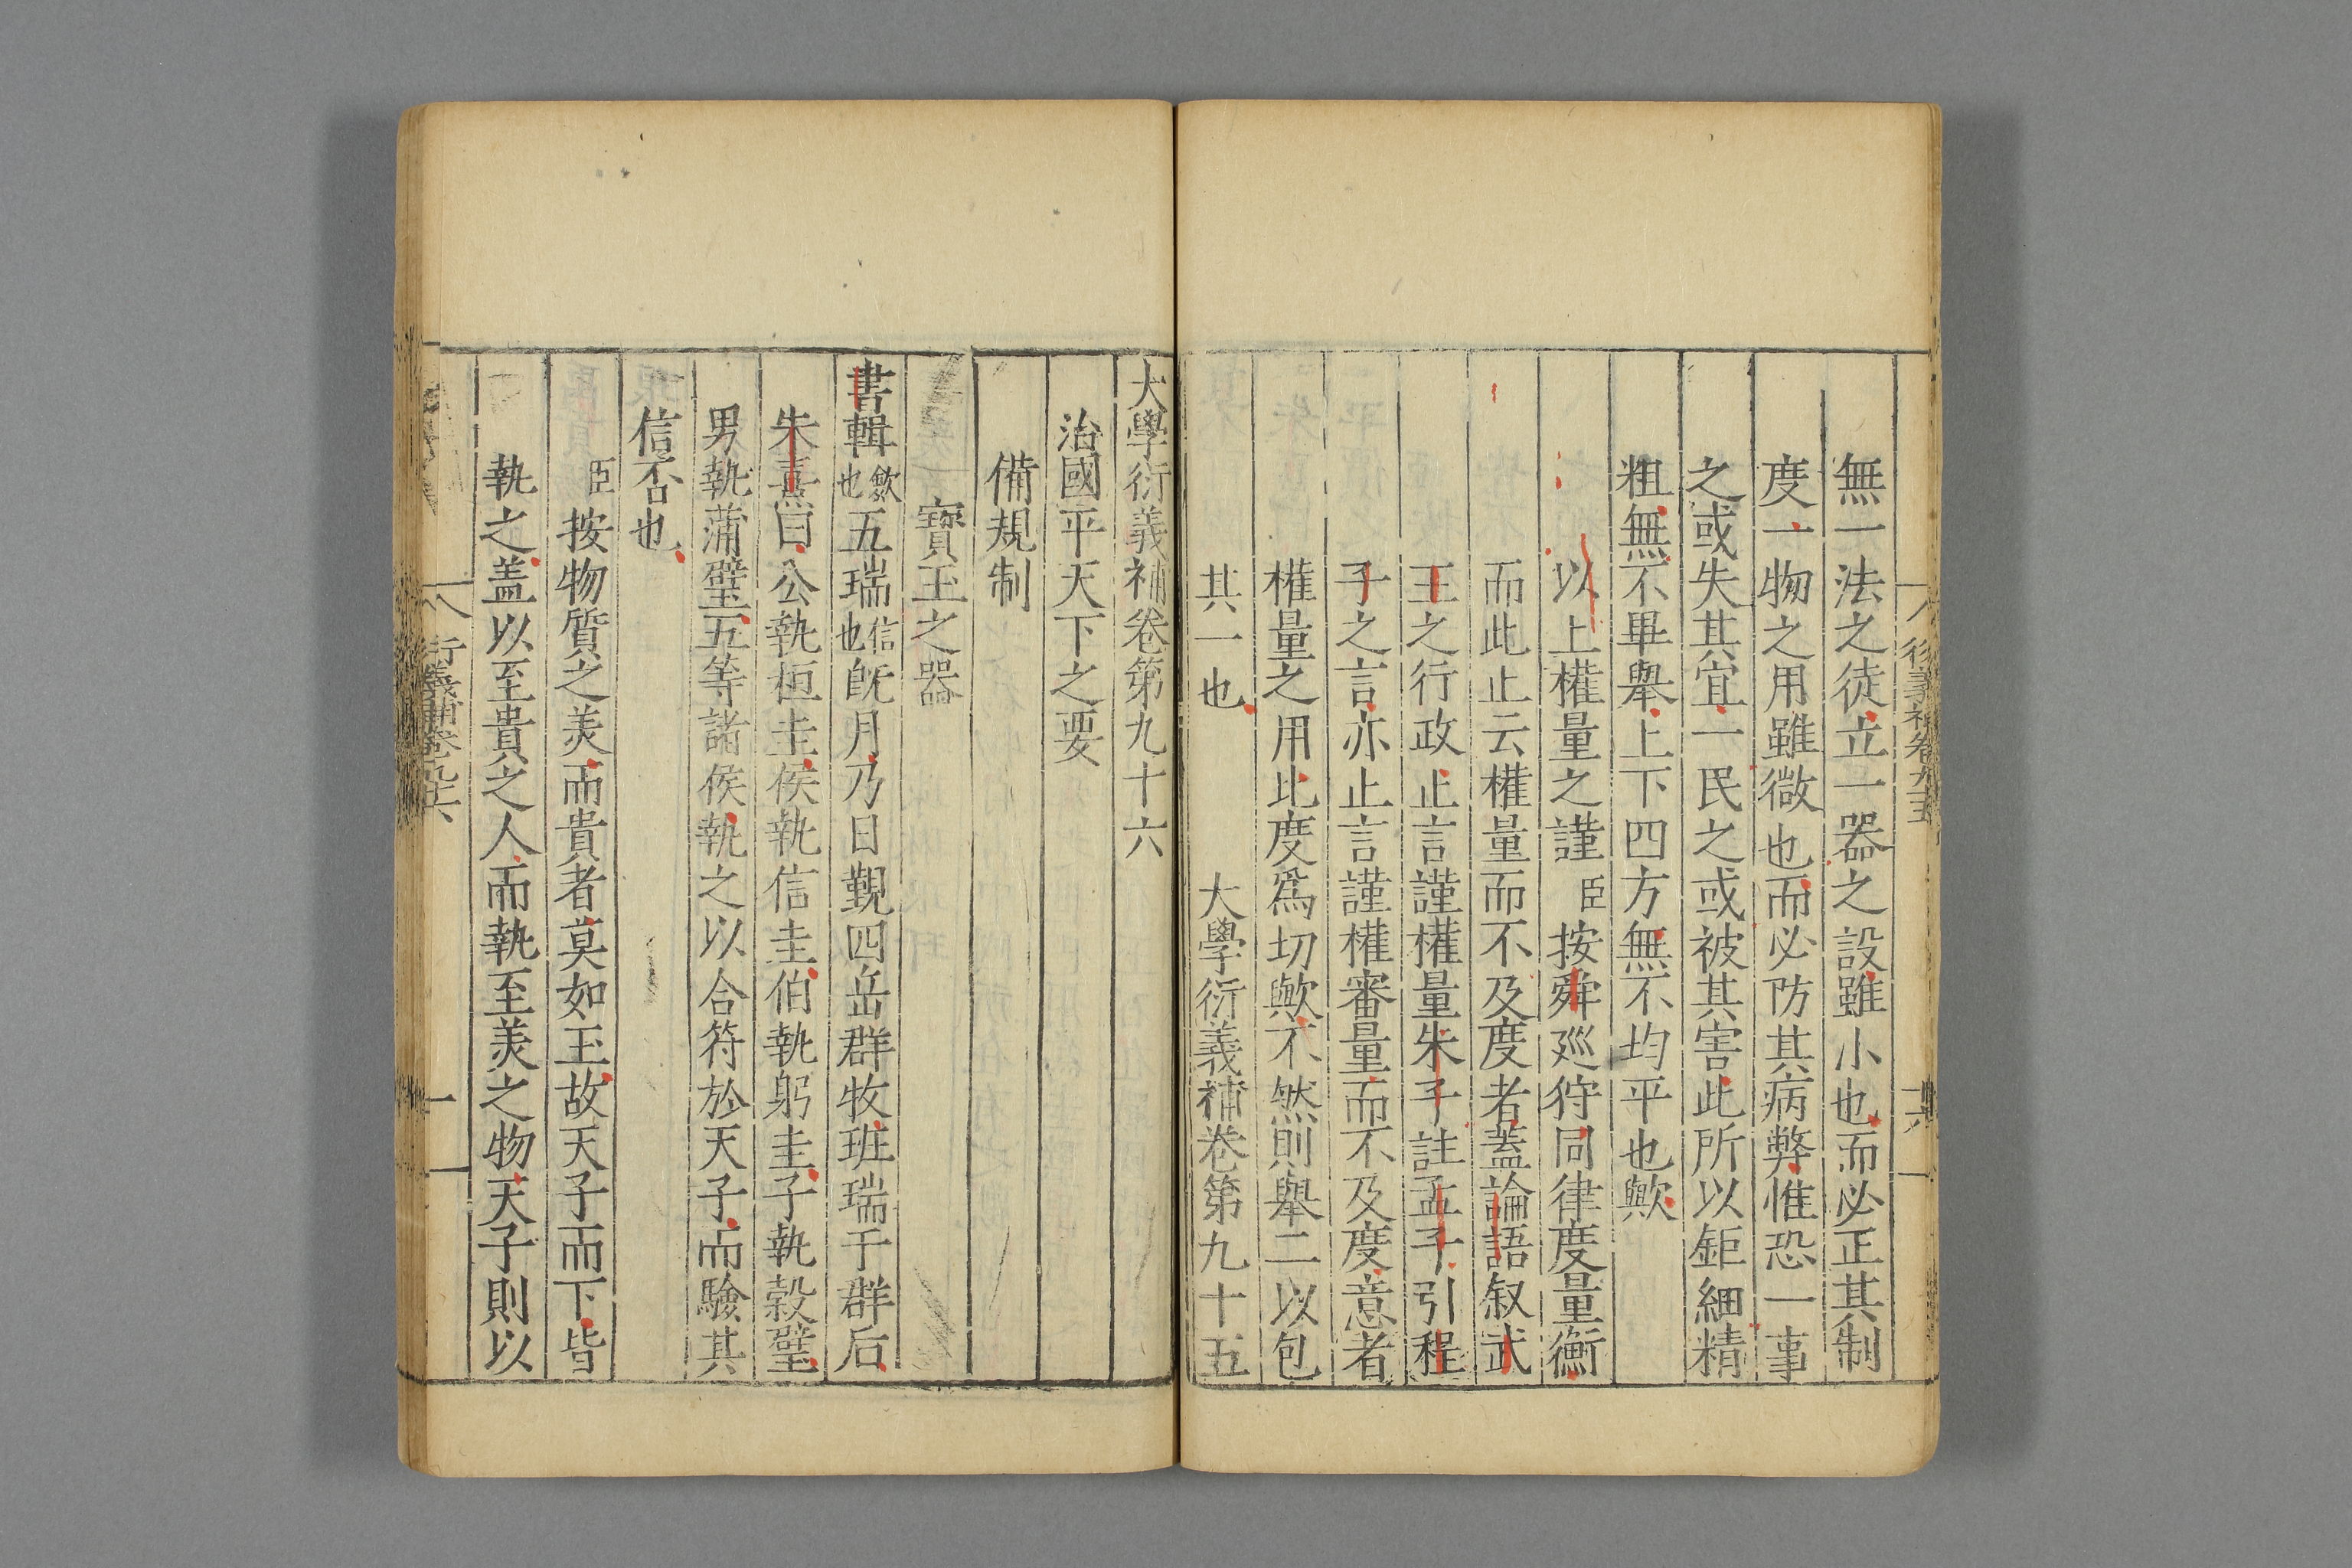 衍義補卷九十五
十六
無一法之徒立一器之設雖小也而必正其制
度一物之用雖微也而必防其病弊惟恐一事
之或失其宜一民之或被其害此所以鉅細精
粗無不畢舉上下四方無不均平也歟
以上權量之謹臣按舜廵狩同律度量衡
而此止云權量而不及度者蓋論語叙武
王之行政止言謹權量朱子註孟子引程
子之言亦止言謹權審量而不及度意者
權量之用比度爲切歟不然則舉二以包
其一也
大學衍義補卷第九十五
大學衍義補卷第九十六
治國平天下之要
備規制
寶玉之器
書輯斂也五瑞信也旣月乃日覲四岳群牧班瑞于群后
朱熹曰公執桓圭侯執信圭伯執躬圭子執穀璧
男執蒲璧五等諸侯執之以合符於天子而驗其
信否也
臣按物質之美而貴者莫如玉故天子而下皆
執之盖以至貴之人而執至美之物天子則以
衍義補卷九十六
一